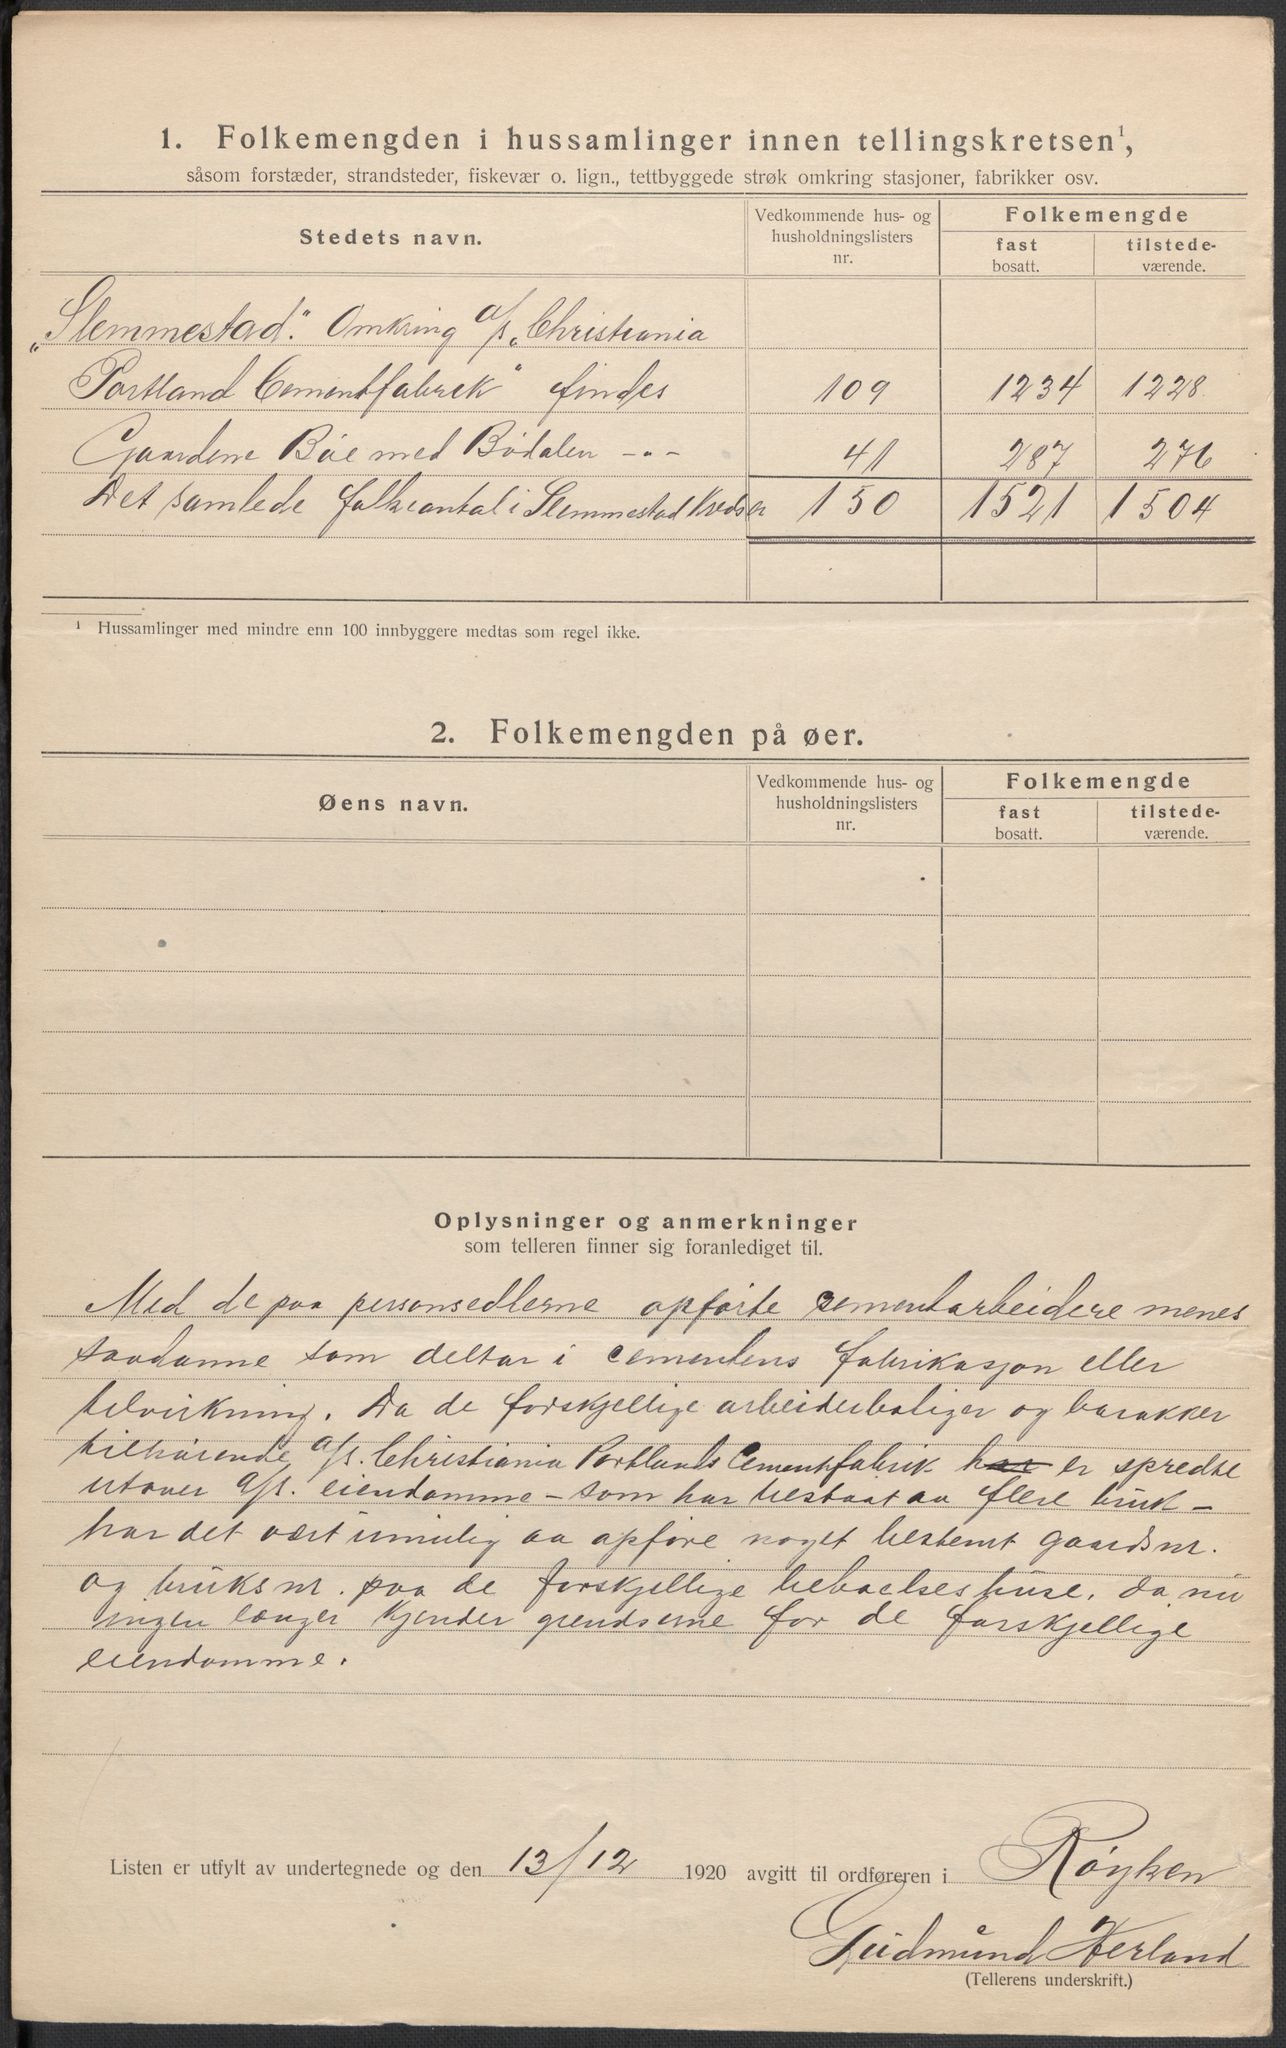 1. Folkemengden i hussamlinger innen tellingskretsen¹,
såsom forstæder, strandsteder, fiskevær o. lign., tettbyggede strøk omkring stasjoner, fabrikker osv.
Stedets navn.
Vedkommende hus- og husholdningslisters nr.
Folkemengde
fast bosatt.
tilstede-værende.
„Slemmestad". Omkring a/s „Christiania
Portland Cementfabrek" findes 109 1234 1228
Gaardene Böe med Bödalen -„- 41 287 276
Det samlede folkeantal i Slemmestad Kreds er 150 1521 1504
¹ Hussamlinger med mindre enn 100 innbyggere medtas som regel ikke.
2. Folkemengden på øer.
Øens navn.
Vedkommende hus- og husholdningslisters nr.
Folkemengde
fast bosatt.
tilstede-værende.
Oplysninger og anmerkninger
som telleren finner sig foranlediget til.
Med de paa personsedlerne opförte cementarbeidere menes
saadanne som deltar i cementens fabrikasjon eller
tilvirkning. Da de forskjellige arbeiderboliger og barakker
tilhörende a/s. Christiania Portlands Cementfabrik har er spredte
utover a/s. eiendomme – som har bestaat av flere bruk –
har det vært umulig aa opföre noget bestemt gaardsnr.
og bruksnr. paa de forskjellige beboelseshuse, da nu
ingen længer kjender grendserne for de forskjellige
eiendomme.
Listen er utfylt av undertegnede og den 13/12 1920 avgitt til ordføreren i Röyken
Gudmund Herland
(Tellerens underskrift.)